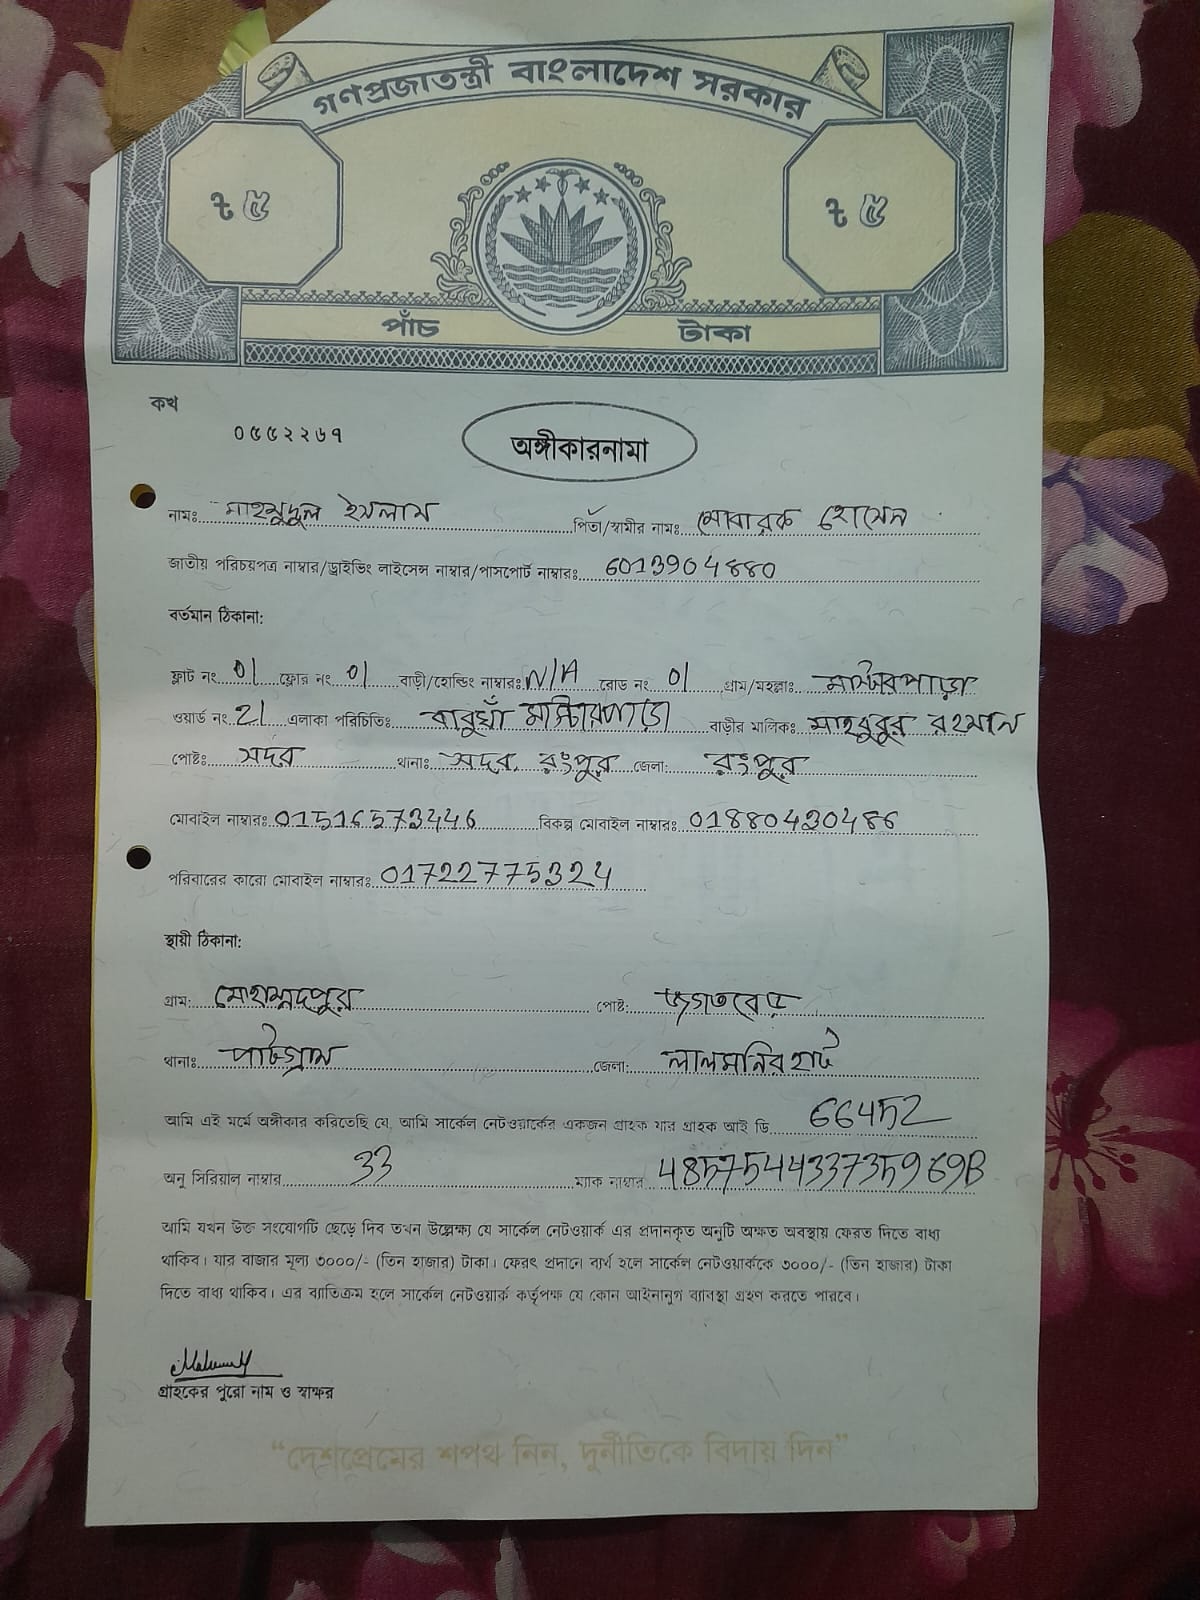 গণপ্রজাতন্ত্রী বাংলাদেশ সরকার
৳ ৫ ৳ ৫
পাঁচ টাকা
কখ
০৫৫২২৬৭
অঙ্গীকারনামা
নামঃ মাহমুদুল ইসলাম পিতা/স্বামীর নামঃ মোবারক হোসেন
জাতীয় পরিচয়পত্র নাম্বার/ড্রাইভিং লাইসেন্স নাম্বার/পাসপোর্ট নাম্বারঃ 6013904880
বর্তমান ঠিকানা:
ফ্লাট নং 01 ফ্লোর নং 01 বাড়ী/হোল্ডিং নাম্বারঃ N/A রোড নং 01 গ্রাম/মহল্লাঃ মাস্টারপাড়া
ওয়ার্ড নং 21 এলাকা পরিচিতিঃ বাবুখাঁ মাস্টারপাড়া বাড়ীর মালিকঃ মাহবুবুর রহমান
পোষ্টঃ সদর থানাঃ সদর, রংপুর জেলা: রংপুর
মোবাইল নাম্বারঃ 01516573446 বিকল্প মোবাইল নাম্বারঃ 01880430486
পরিবারের কারো মোবাইল নাম্বারঃ 01722775324
স্থায়ী ঠিকানা:
গ্রাম: মোহাম্মদপুর পোষ্ট: জগতবেড়
থানাঃ পাটগ্রাম জেলা: লালমনিরহাট
আমি এই মর্মে অঙ্গীকার করিতেছি যে, আমি সার্কেল নেটওয়ার্কের একজন গ্রাহক যার গ্রাহক আই ডি 66452
অনু সিরিয়াল নাম্বার 33 ম্যাক নাম্বার 485754433735969B
আমি যখন উক্ত সংযোগটি ছেড়ে দিব তখন উল্লেক্ষ্য যে সার্কেল নেটওয়ার্ক এর প্রদানকৃত অনুটি অক্ষত অবস্থায় ফেরত দিতে বাধ্য
থাকিব। যার বাজার মূল্য ৩০০০/- (তিন হাজার) টাকা। ফেরৎ প্রদানে ব্যর্থ হলে সার্কেল নেটওয়ার্ককে ৩০০০/- (তিন হাজার) টাকা
দিতে বাধ্য থাকিব। এর ব্যতিক্রম হলে সার্কেল নেটওয়ার্ক কর্তৃপক্ষ যে কোন আইনানুগ ব্যাবস্থা গ্রহণ করতে পারবে।
গ্রাহকের পুরো নাম ও স্বাক্ষর
“দেশপ্রেমের শপথ নিন, দুর্নীতিকে বিদায় দিন”